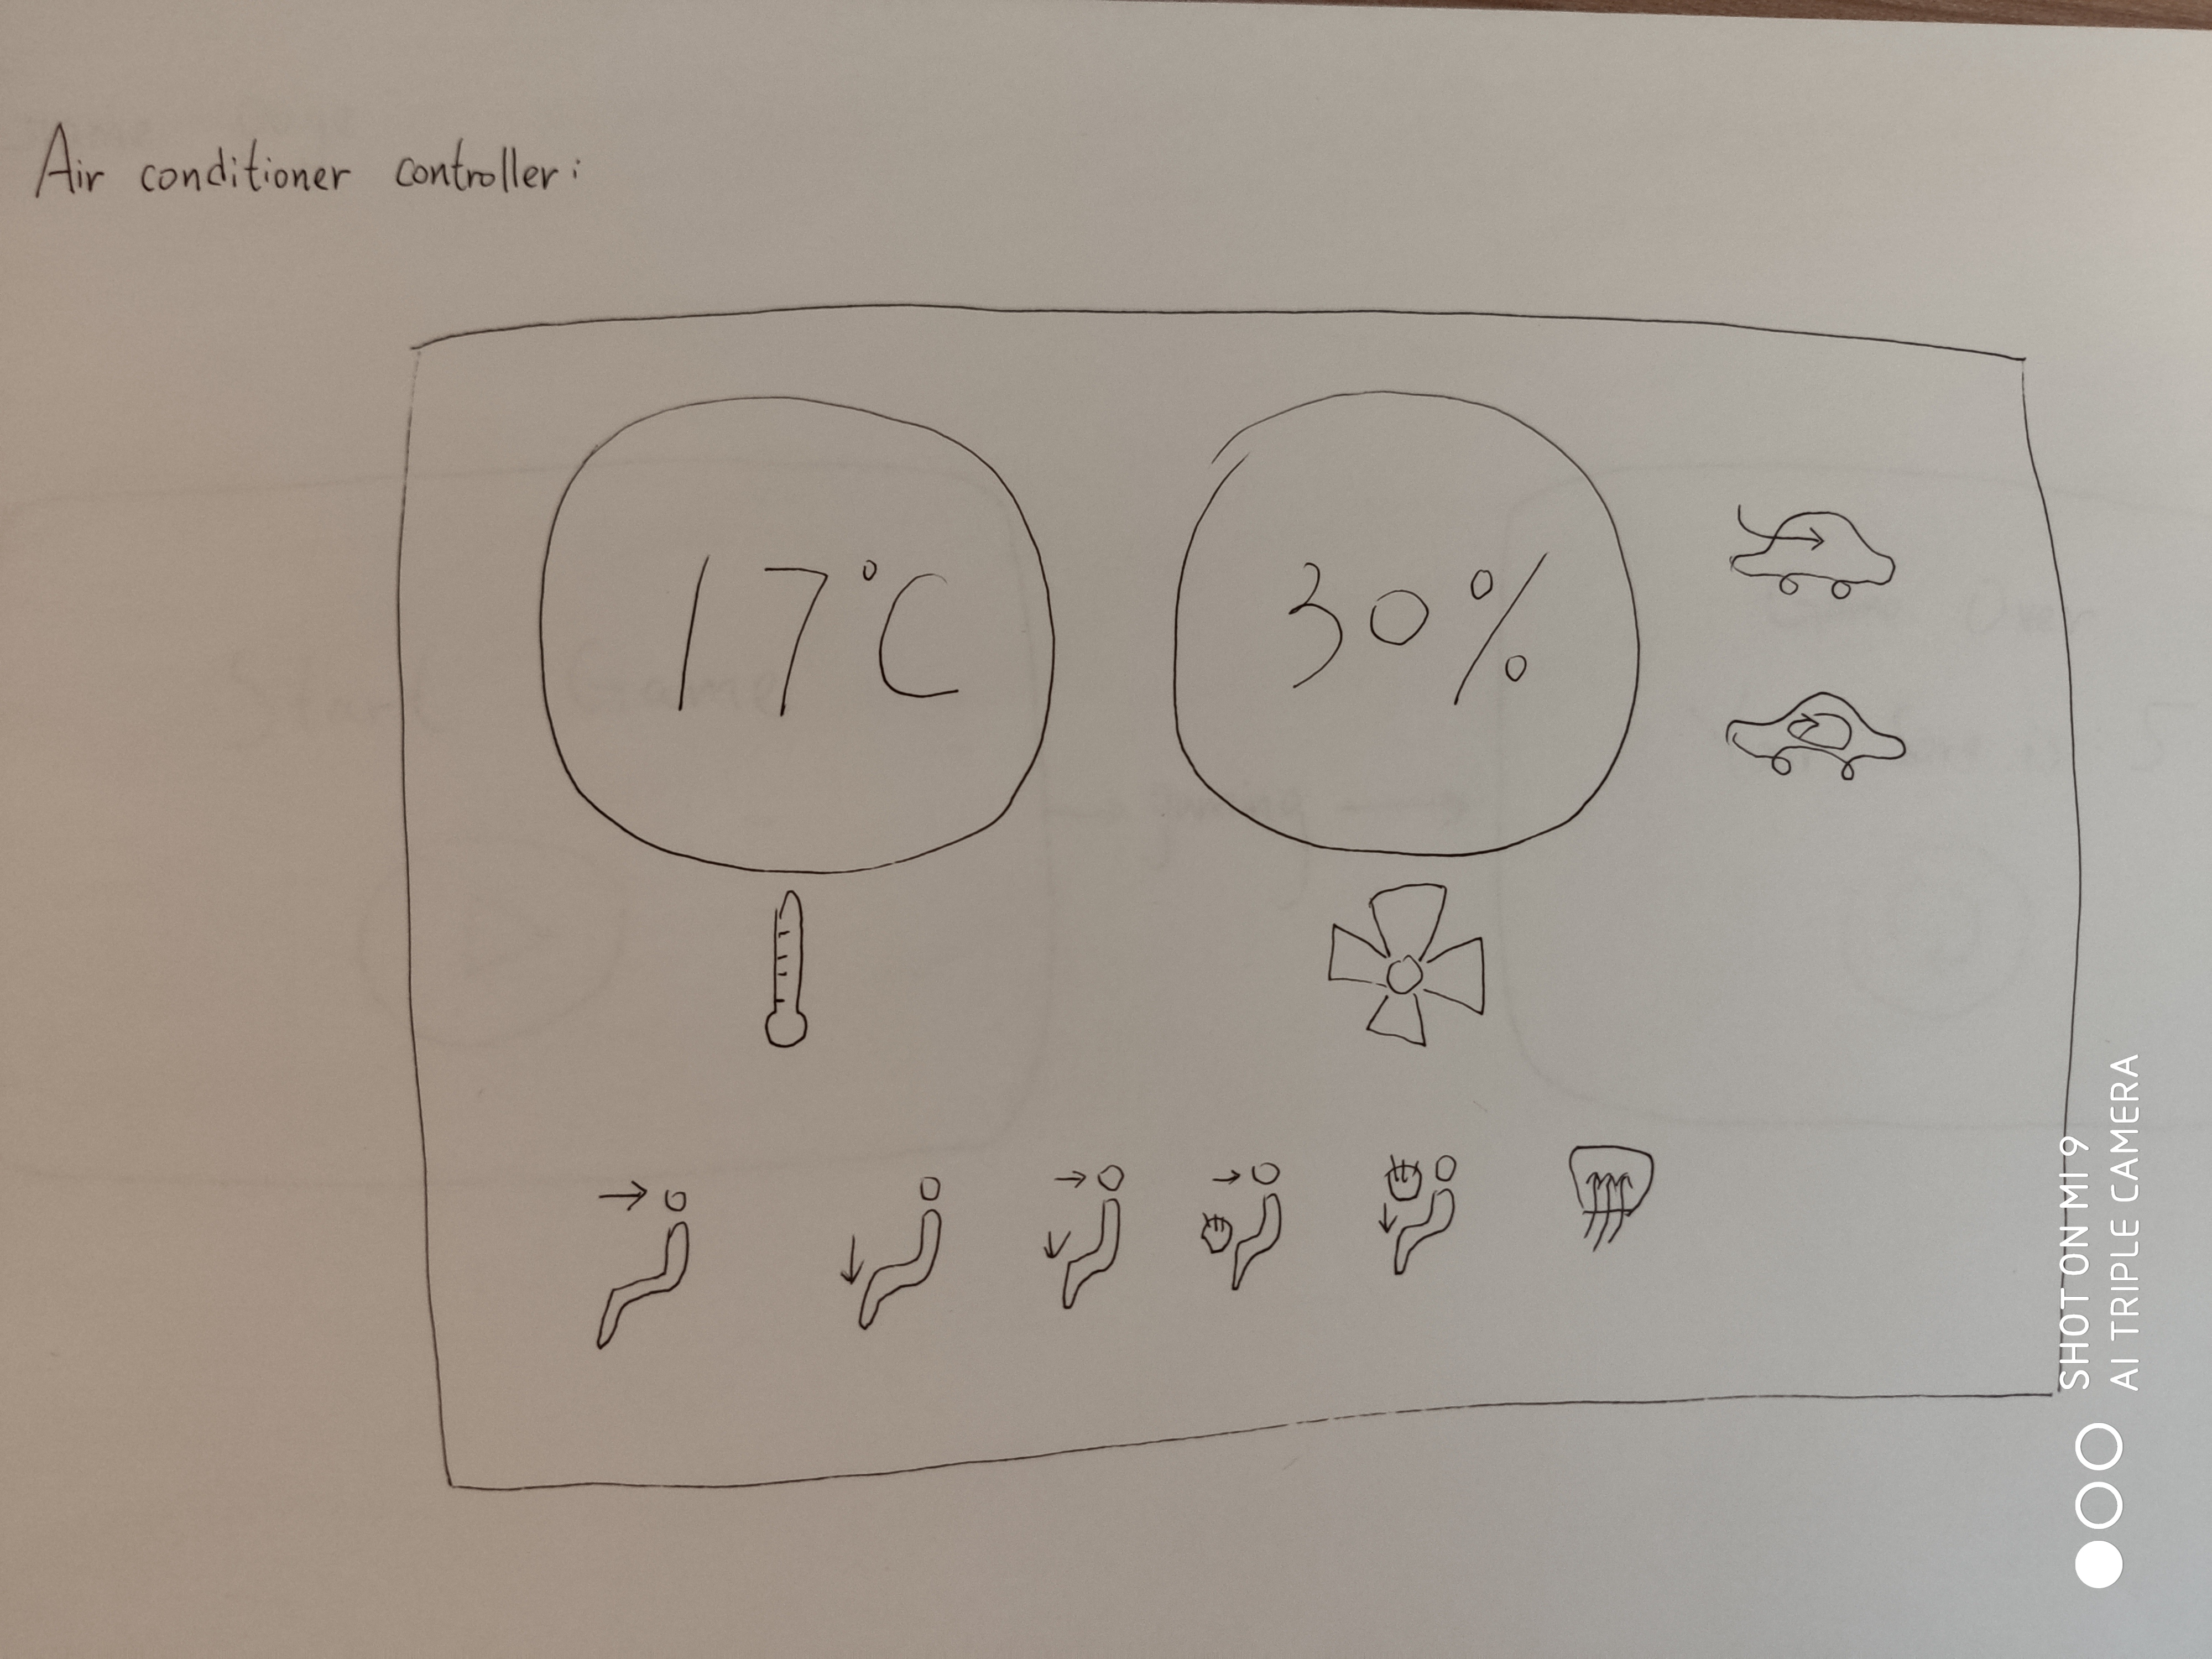 Air conditioner controller:
17°C
30%
SHOT ON MI 9
AI TRIPLE CAMERA